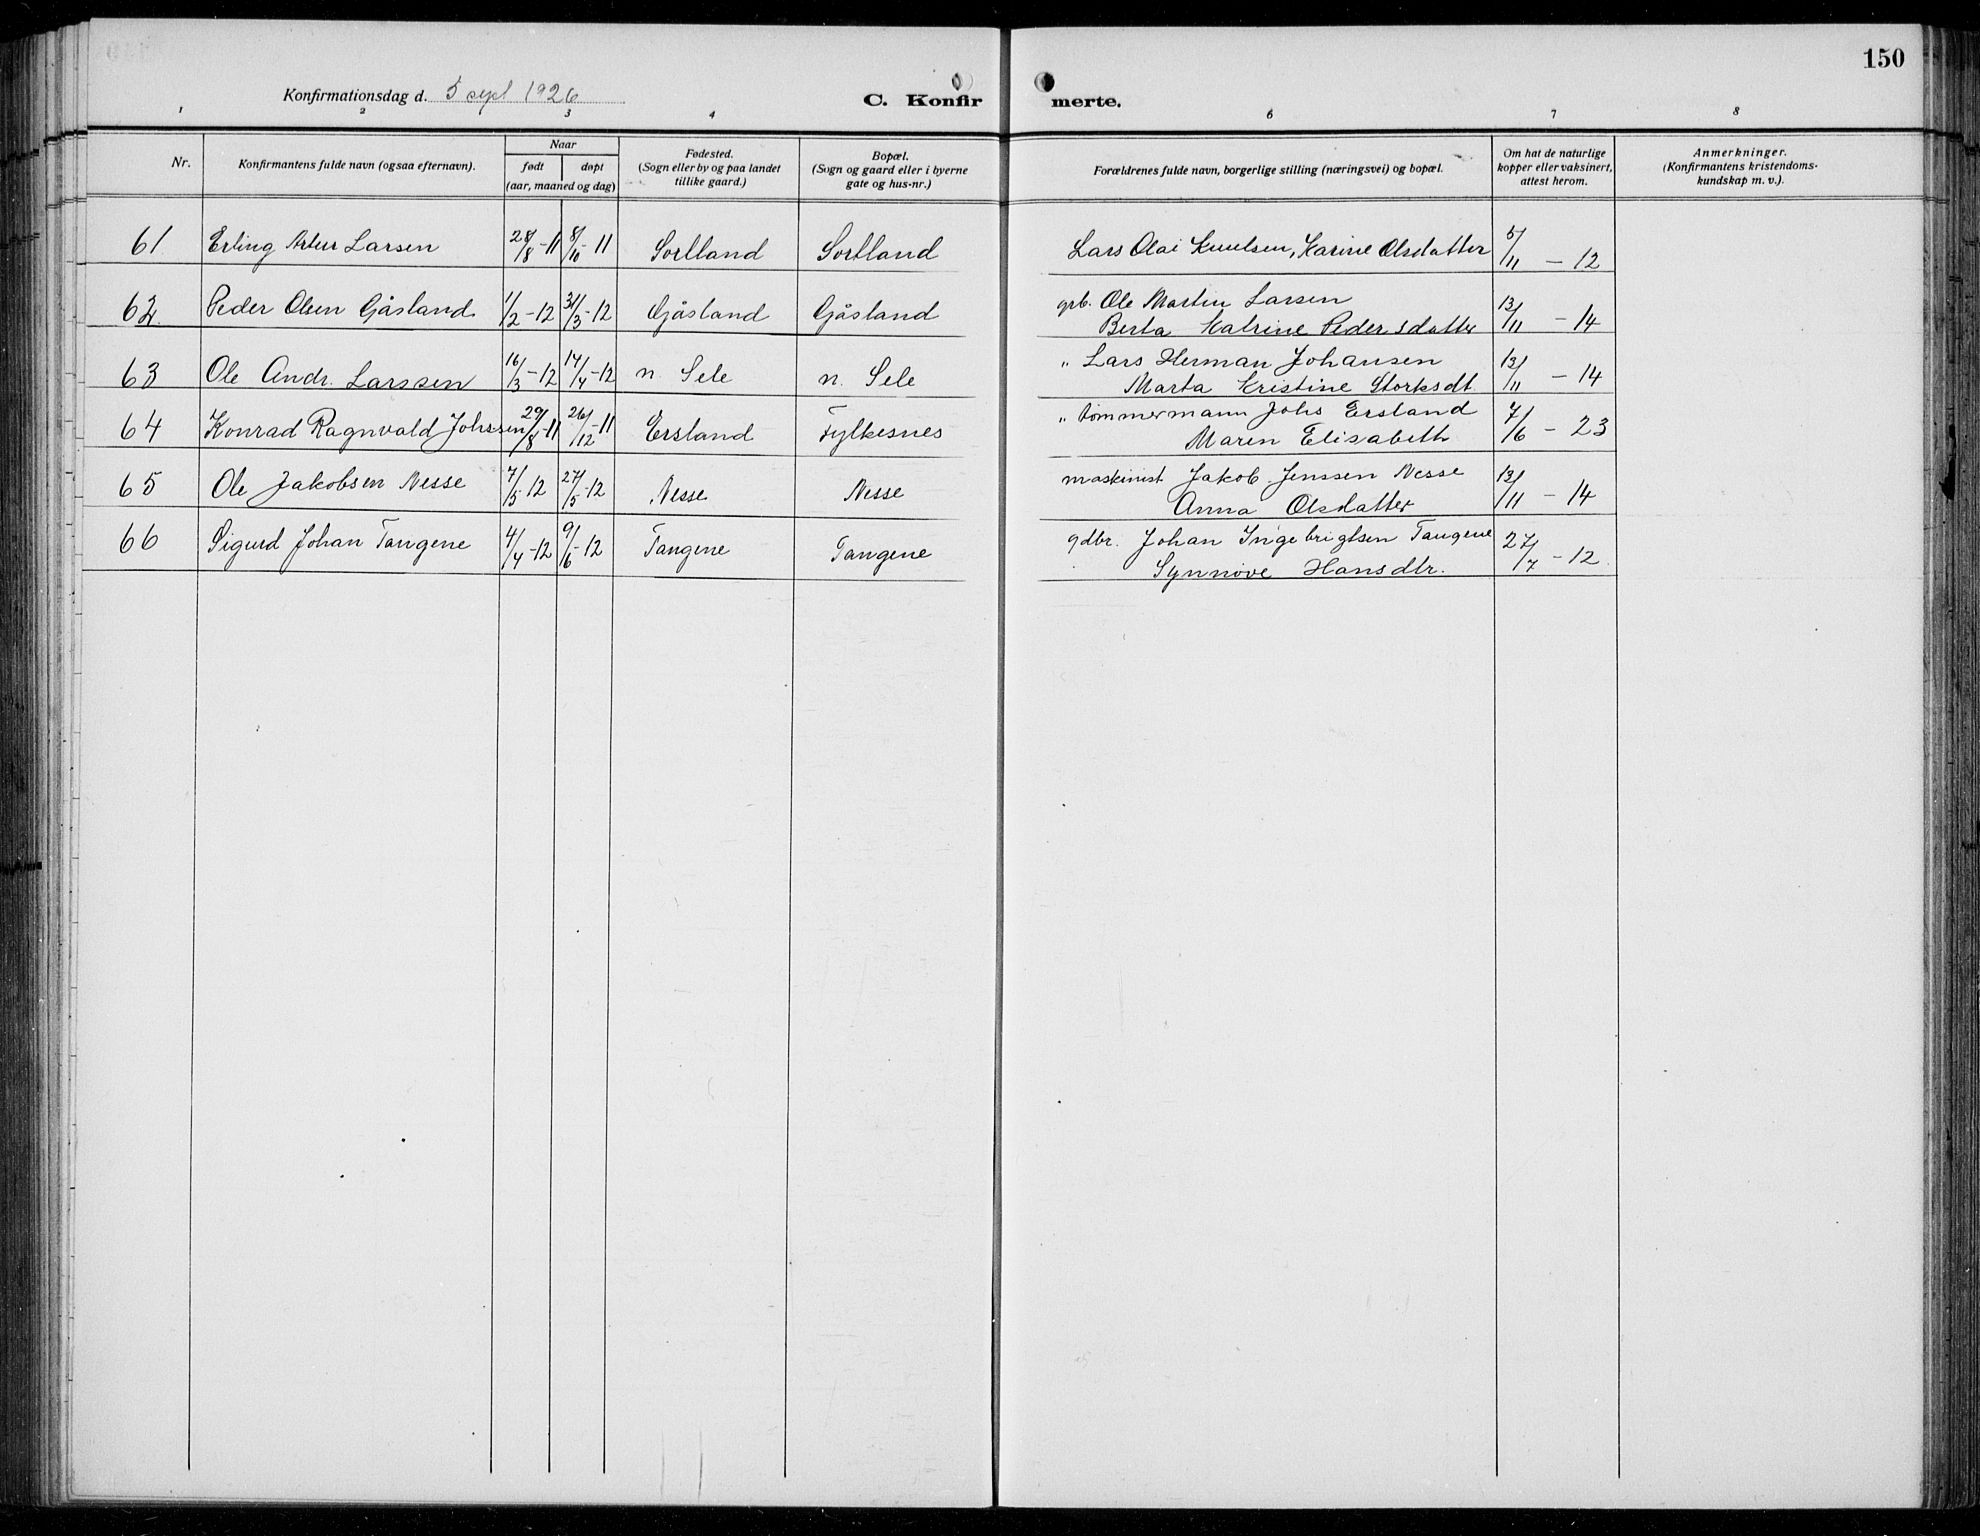 150
Konfirmationsdag d. 5 sept 1926
C. Konfirmerte.
1 2 3 4 6 7 8
Nr.
Konfirmantens fulde navn (ogsaa efternavn).
Naar
født
døpt
(aar, maaned og dag)
Fødested.
(Sogn eller by og paa landet
tillike gaard.)
Bopæl.
(Sogn og gaard eller i byerne
gate og hus-nr.)
Forældrenes fulde navn, borgerlige stilling (næringsvei) og bopæl.
Om hat de naturlige
kopper eller vaksinert,
attest herom.
Anmerkninger.
(Konfirmantens kristendoms-
kundskap m. v.).
61 Erling Artur Larsen 28/8-11 8/10-11 Sortland Sortland Lars Olai Knutsen, Karine Olsdatter 5/11 - 12
62 Peder Olsen Gåsland 1/2-12 31/3-12 Gåsland Gåsland grb. Ole Martin Larsen 13/11 - 14
Berta Katrine Pedersdatter
63 Ole Andr. Larssen 16/3-12 14/4-12 n. Sele n. Sele " Lars Herman Johansen 13/11 - 14
Marta Kristine Storksdt.
64 Konrad Ragnvald Johssen 29/8-11 26/12-11 Ersland Fylkesnes " tømmermann Johs Ersland 7/6 - 23
Maren Elisabeth
65 Ole Jakobsen Nesse 7/5-12 27/5-12 Nesse Nesse maskinist Jakob Jenssen Nesse 13/11 - 14
Anna Olsdatter
66 Sigurd Johan Tangene 4/4-12 9/6-12 Tangene Tangene gdbr. Johan Ingebrigtsen Tangene 27/7 - 12
Synnøve Hansdtr.